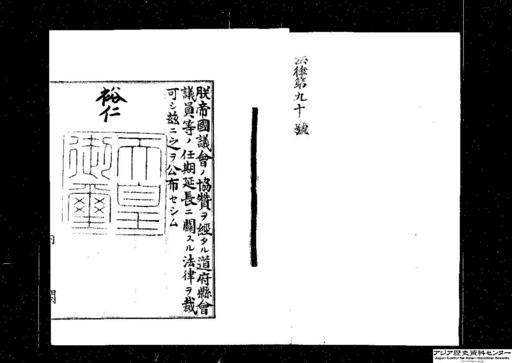 法律第九十號
朕帝國議會ノ協贊ヲ經タル道府縣會
議員等ノ任期延長ニ關スル法律ヲ裁
可シ茲ニ之ヲ公布セシム
裕仁
天皇
御璽
内閣
アジア歴史資料センター
Japan Center for Asian Historical Records